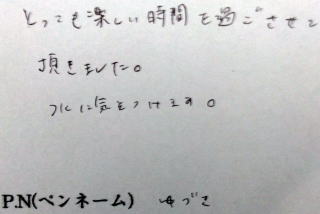 とっても楽しい時間を過ごさせて
頂きました。
水に気をつけます。
P.N(ペンネーム) ゆづき